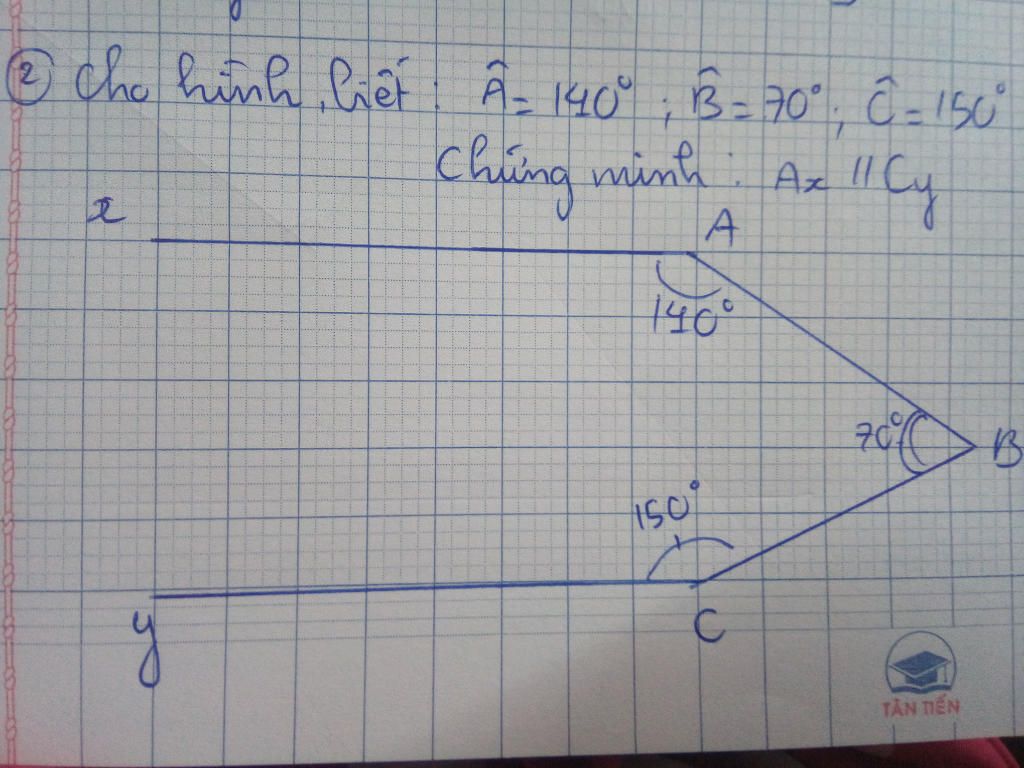 ② Cho hình, biết : Â = 140° ; B̂ = 70° ; Ĉ = 150°
Chứng minh : Ax // Cy
x
A
140°
70°
B
150°
y
C
TÂN TIẾN